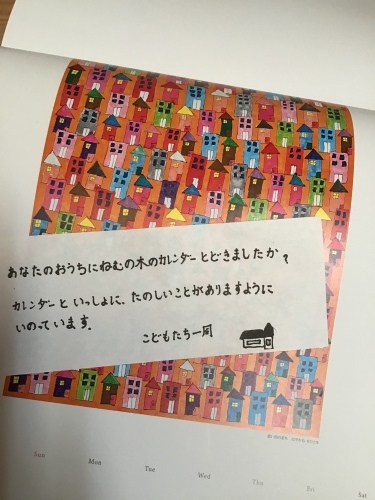 あなたのおうちにねむの木のカレンダーとどきましたか？
カレンダーといっしょに、たのしいことがありますように
いのっています。
こどもたち一同
Sun Mon Tue Wed Thu Fri Sat